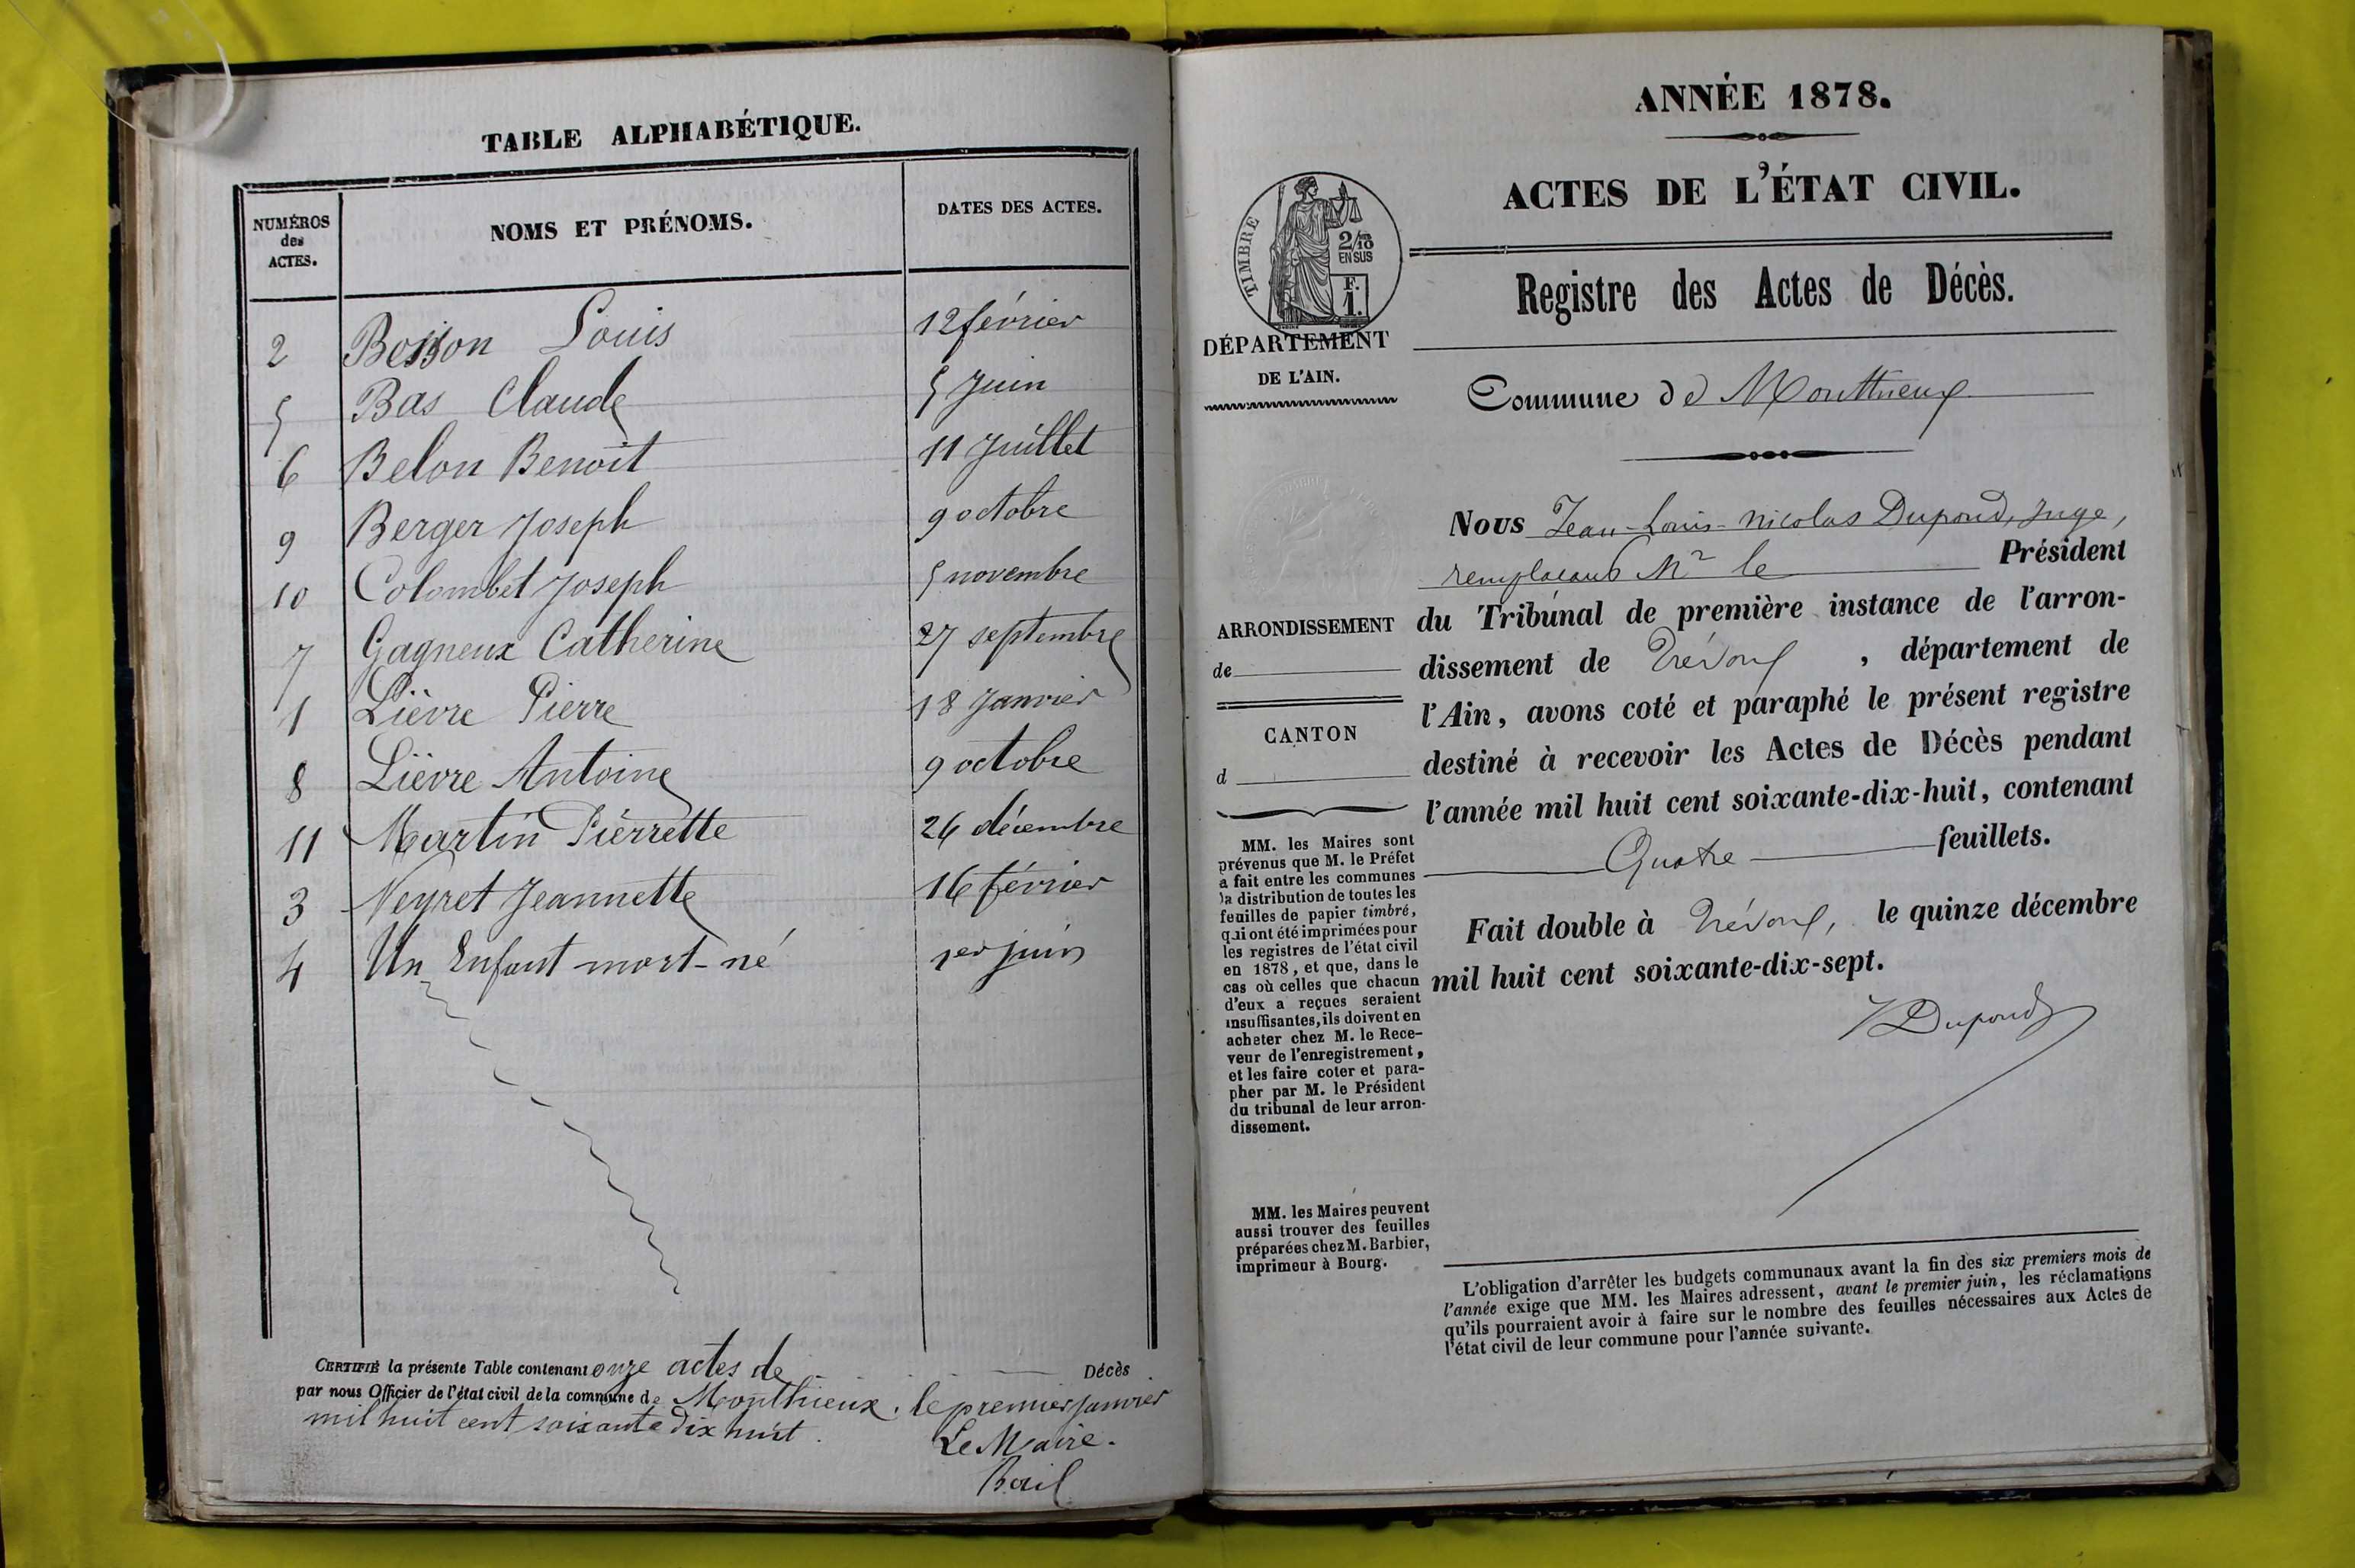 TABLE ALPHABÉTIQUE.
NUMÉROS des ACTES.
NOMS ET PRÉNOMS.
DATES DES ACTES.
2 Bosson Louis 12 février
5 Bas Claude 5 Juin
6 Belon Benoit 11 Juillet
9 Berger Joseph 9 octobre
10 Colombet Joseph 5 novembre
7 Gagneux Catherine 27 septembre
1 Lièvre Pierre 18 Janvier
8 Lièvre Antoine 9 octobre
11 Martin Pierrette 26 décembre
3 Neyret Jeannette 16 février
4 Un Enfant mort-né 1er juin
CERTIFIÉ la présente Table contenant onze actes de Décès
par nous Officier de l'état civil de la commune de Monthieux. le premier janvier
mil huit cent soixante dix huit.
Le Maire.
ANNÉE 1878.
ACTES DE L'ÉTAT CIVIL.
TIMBRE
2/10
EN SUS
F.
1.
Registre des Actes de Décès.
DÉPARTEMENT
DE L'AIN.
Commune de Monthieux
Nous Jean-Louis-Nicolas Dupond, juge,
remplaçant Mr le Président
du Tribunal de première instance de l'arron-
dissement de Trévoux, département de
l'Ain, avons coté et paraphé le présent registre
destiné à recevoir les Actes de Décès pendant
l'année mil huit cent soixante-dix-huit, contenant
Quatre feuillets.
Fait double à Trévoux, le quinze décembre
mil huit cent soixante-dix-sept.
Dupond
ARRONDISSEMENT
de
CANTON
d
MM. les Maires sont
prévenus que M. le Préfet
a fait entre les communes
la distribution de toutes les
feuilles de papier timbré,
qui ont été imprimées pour
les registres de l'état civil
en 1878, et que, dans le
cas où celles que chacun
d'eux a reçues seraient
insuffisantes, ils doivent en
acheter chez M. le Rece-
veur de l'enregistrement,
et les faire coter et para-
pher par M. le Président
du tribunal de leur arron-
dissement.
MM. les Maires peuvent
aussi trouver des feuilles
préparées chez M. Barbier,
imprimeur à Bourg.
L'obligation d'arrêter les budgets communaux avant la fin des six premiers mois de
l'année exige que MM. les Maires adressent, avant le premier juin, les réclamations
qu'ils pourraient avoir à faire sur le nombre des feuilles nécessaires aux Actes de
l'état civil de leur commune pour l'année suivante.